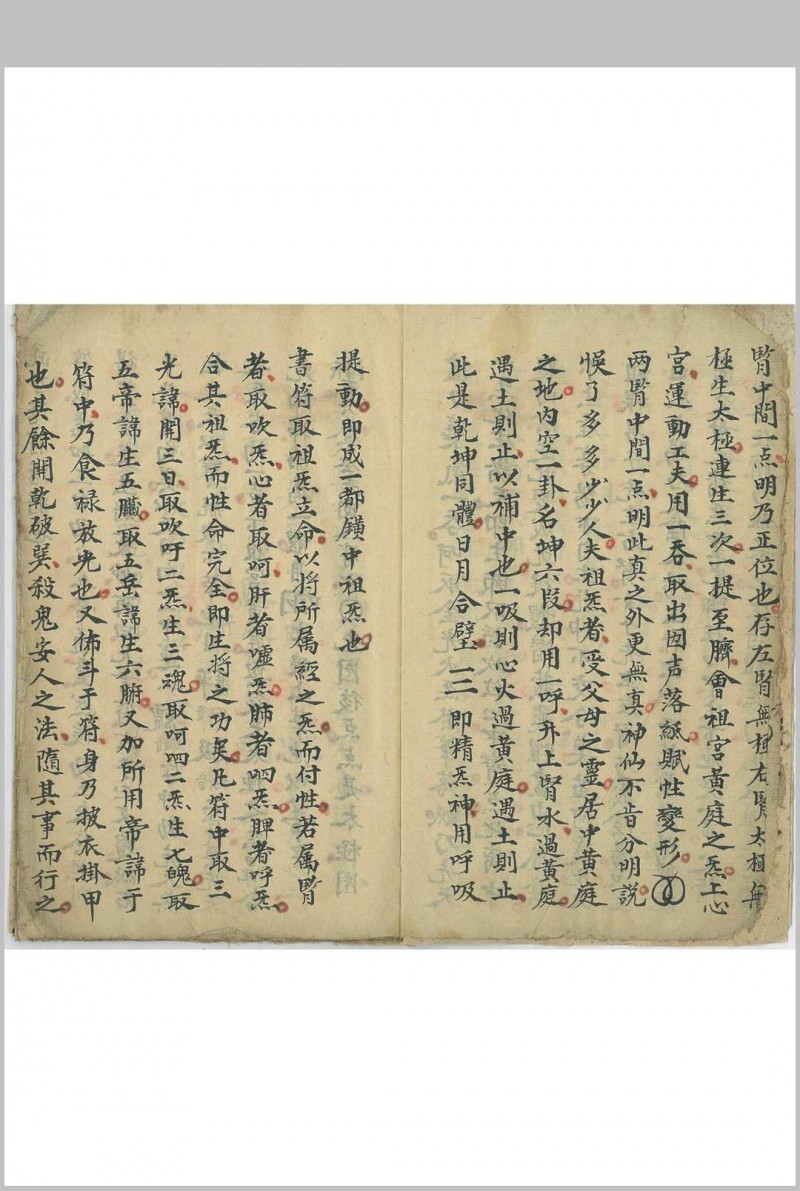 腎中間一点明乃正位也存左腎無極右腎太極無
極生太極連生三次一提至臍會祖宮黃庭之炁上心
宮運動工夫用一吞取出囙声落紙賦性變形
两腎中間一点明此真之外更無真神仙不肯分明說
悮了多多少少人夫祖炁者受父母之靈居中黃庭
之地内空一卦名坤六叚却用一呼升上腎水過黃庭
遇土則止以補中也一吸則心火過黃庭遇土則止
此是乾坤同體日月合璧三即精炁神用呼吸
提動即成一都鐄中祖炁也
書符取祖炁立命以將所属經之炁而付性若属腎
者取吹炁心者取呵肝者噓炁肺者呬炁脾者呼炁
合其祖炁而性命完全即生將之功矣凡符中取三
光諱開三日取吹吁二炁生三魂取呵呬二炁生七魄取
五帝諱生五臟取五岳諱生六腑又加所用帝諱于
符中乃食禄放光也又佈斗于符身乃披衣掛甲
也其餘開乾破巽殺鬼安人之法隨其事而行之